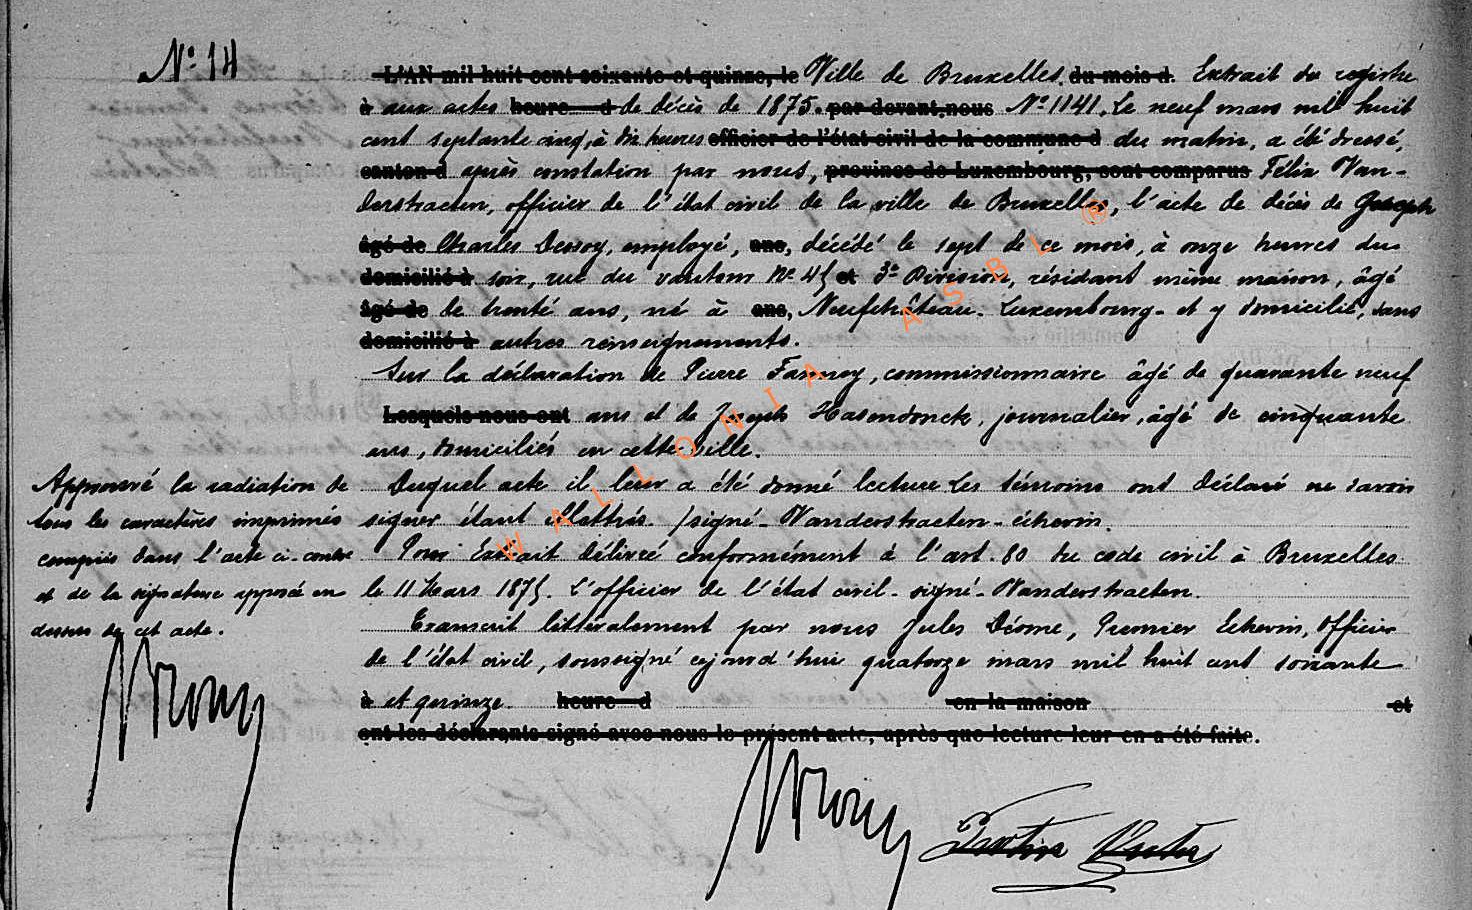 N° 14
L'AN mil huit cent soixante et quinze, le Ville de Bruxelles. du mois d Extrait du registre
à aux actes heure d de décès de 1875. par devant nous N° 1141. Le neuf mars mil huit
cent septante cinq, à dix heures officier de l'état civil de la commune d du matin, a été dressé,
canton d après constation par nous, province de Luxembourg, sont comparus Félix Van-
derstraeten, officier de l'état civil de la ville de Bruxelles, l'acte de décès de Joseph
âgé de Charles Dessoy, employé, ans, décédé le sept de ce mois, à onze heures du
domicilié à soir, rue du vautour N° 45 et 3e Division, résidant même maison, âgé
âgé de de trente ans, né à ans, Neufchâteau. Luxembourg- et y domicilié, sans
domicilié à autres renseignements.
Sur la déclaration de Pierre commissionnaire âgé de quarante neuf
Lesquels nous ont ans et de Joseph Hasendonck, journalier, âgé de cinquante
ans, domiciliés en cette ville.
Duquel acte il leur a été donné lecture Les témoins ont déclaré ne savoir
signer étant illettrés. /signé- Vanderstraeten- échevin.
Pour Extrait délivré conformément à l'art. 80 du code civil à Bruxelles
le 11 Mars 1875. L'officier de l'état civil- signé- Vanderstraeten.
Transcrit littéralement par nous Jules Déome, Premier Echevin, officier
de l'état civil, soussigné cejourd'hui quatorze mars mil huit cent soixante
à et quinze. heure d en la maison et
ont les déclarants signé avec nous le présent acte, après que lecture leur en a été faite.
Approuvé la radiation de
tous les caractères imprimés
compris dans l'acte ci-contre
et de la signature apposée en
dessous de cet acte.
WALLONIA ASBL ®